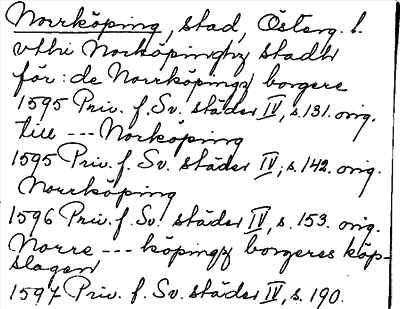 Norrköping, stad, Österg. l.
vthi Norköpingz stadh
för: de Norrköpingz borgere
1595 Priv. f. Sv. städer IV, s. 131. orig.
till --- Norköping
1595 Priv. f. Sv. städer IV, s. 142. orig.
Norrköping
1596 Priv. f. Sv. städer IV, s. 153. orig.
Norre --- köpingz borgeres köp-
slagan
1597 Priv. f. Sv. städer IV, s. 190.